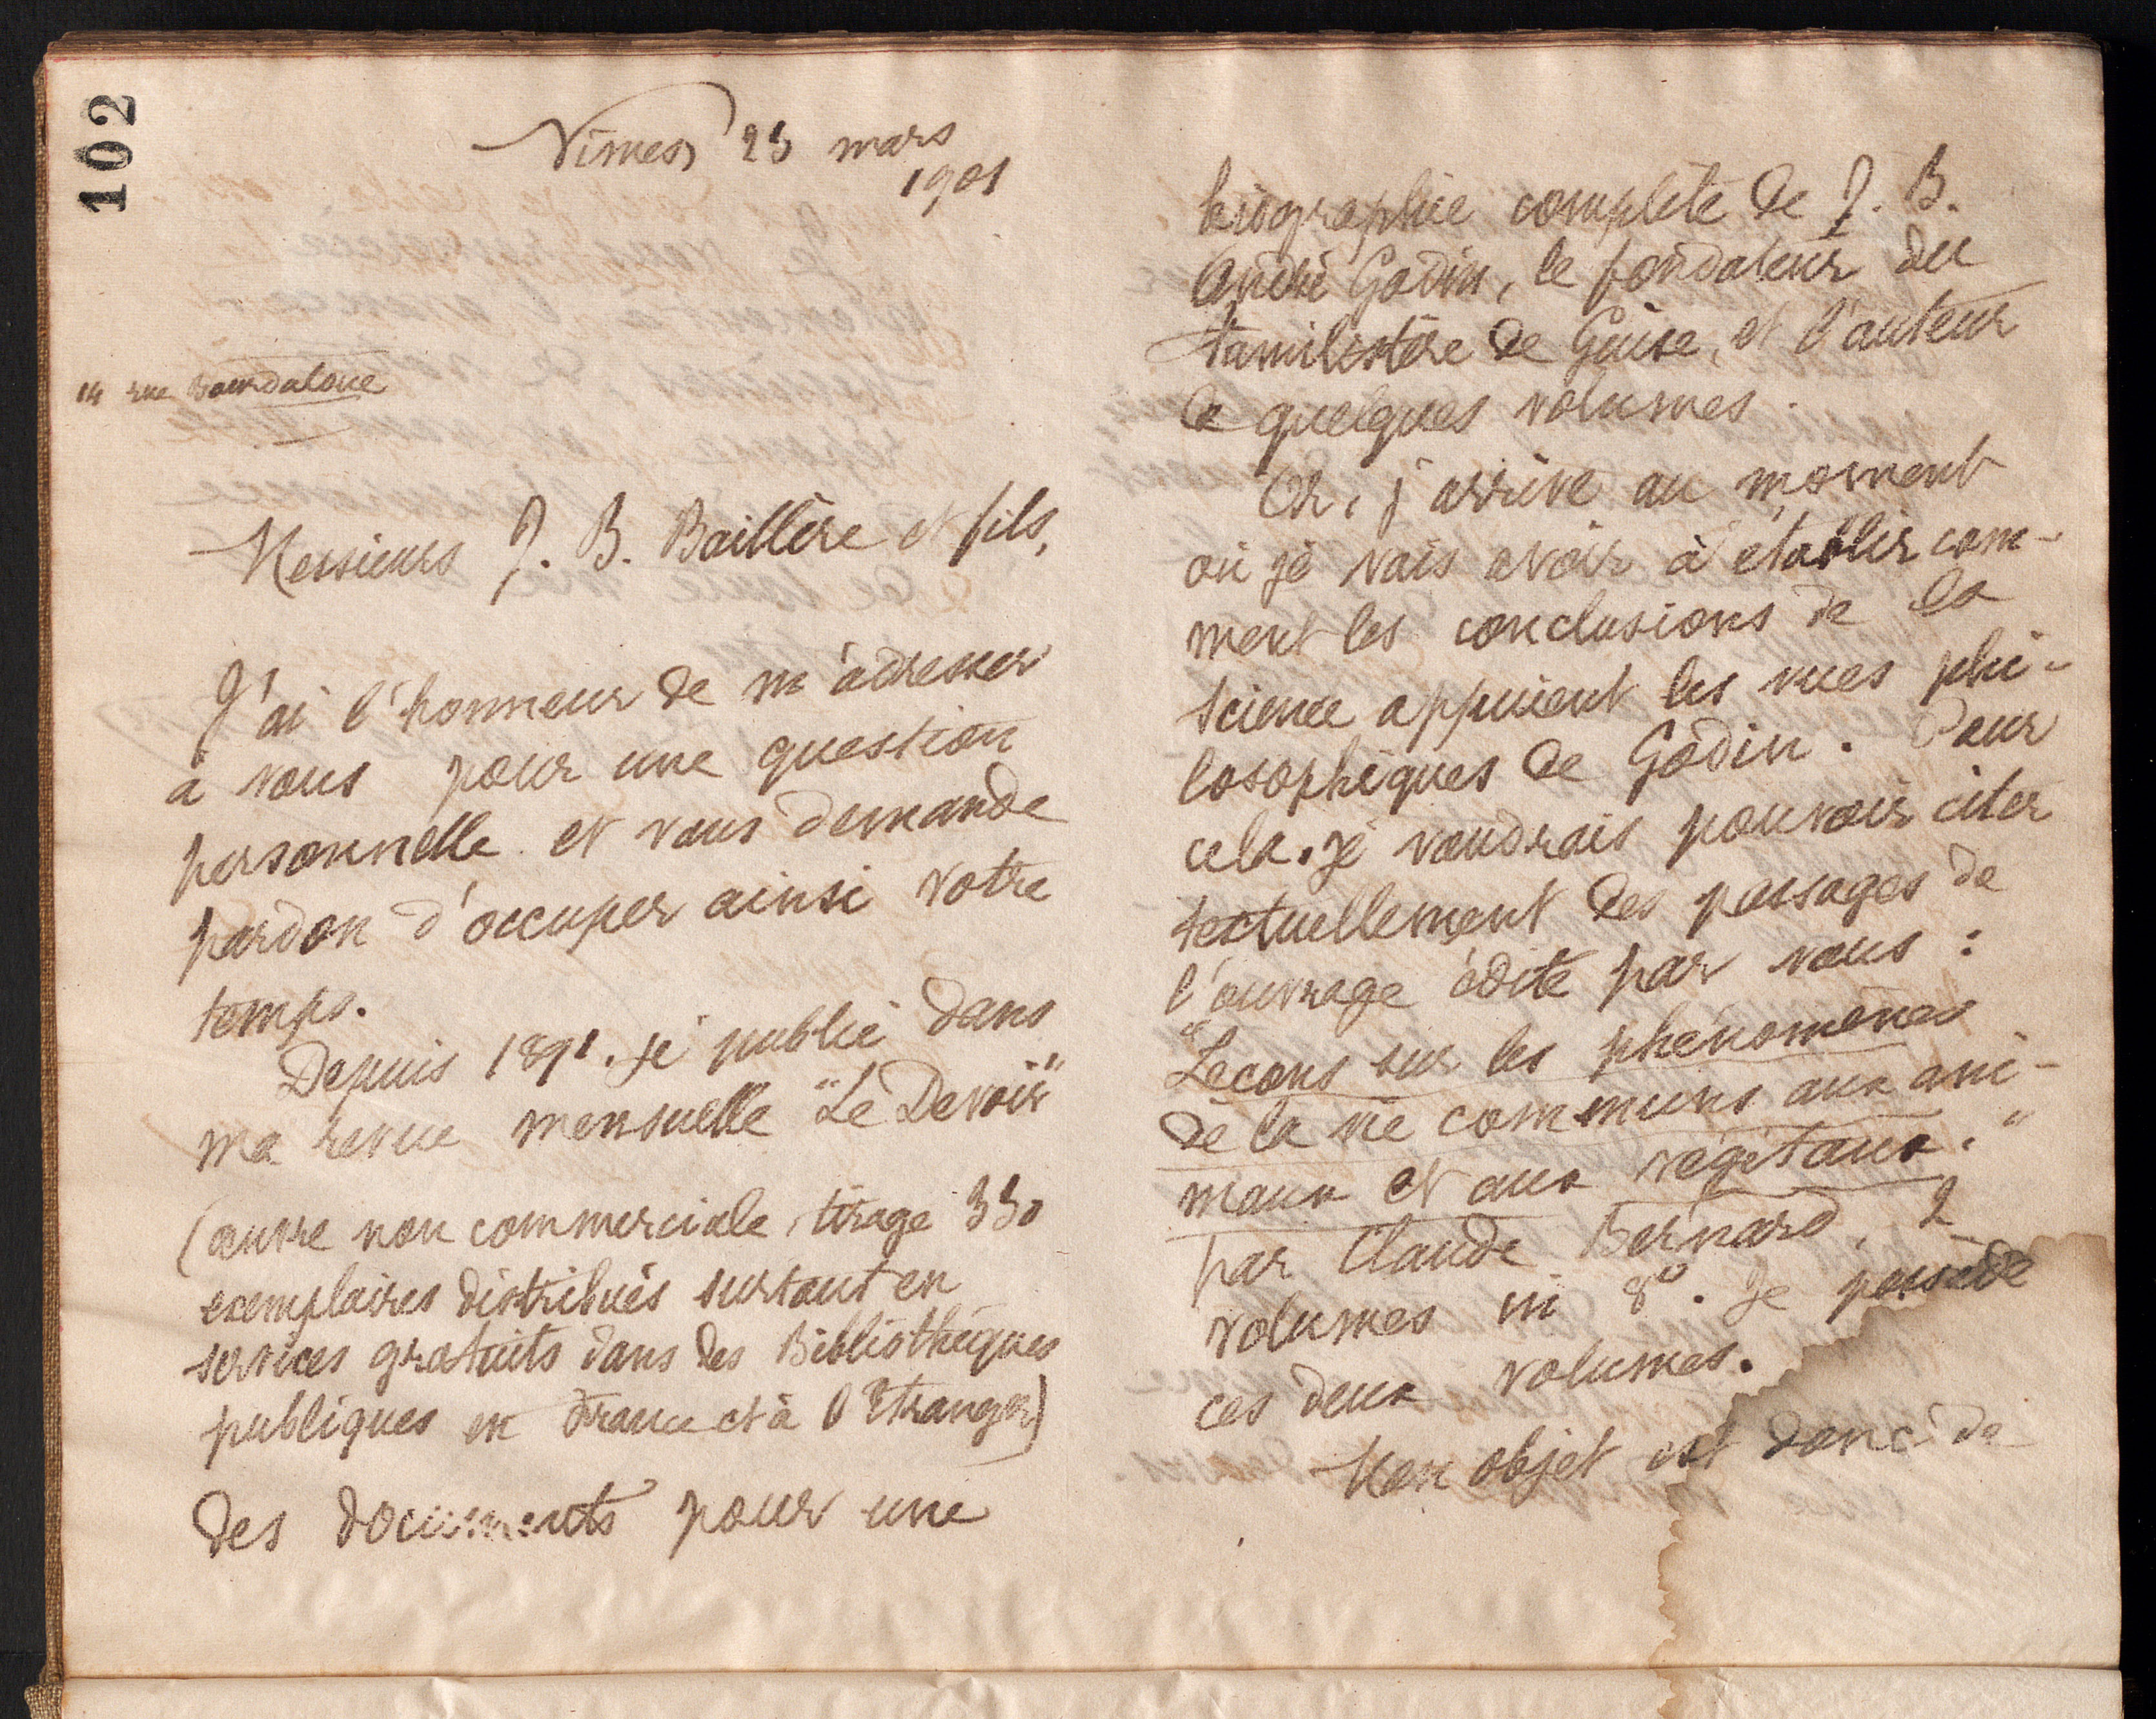 102
Nîmes 25 mars
1901
14 rue Bourdaloue
Messieurs J. B. Baillère et fils,
J'ai l'honneur de m'adresser
à vous pour une question
personnelle et vous demande
pardon d'occuper ainsi votre
temps.
Depuis 1891. je publie dans
ma revue mensuelle "Le Devoir"
(œuvre non commerciale, tirage 350
exemplaires distribués surtout en
services gratuits dans des Bibliothèques
publiques en France et à l'Etranger)
des documents pour une
biographie complète de J. B.
André Godin, le fondateur du
familistère de Guise, et l'auteur
de quelques volumes.
Or, j'arrive au moment
où je vais avoir à établir com-
ment les conclusions de la
science appuient les vues phi-
losophiques de Godin. Pour
cela. je voudrais pouvoir citer
textuellement des passages de
l'ouvrage édité par vous :
"Leçons sur les phénomènes
de la vie communs aux ani-
maux et aux végétaux."
par Claude Bernard, 2
volumes in 8°. Je possède
ces deux volumes.
Mon objet est donc de